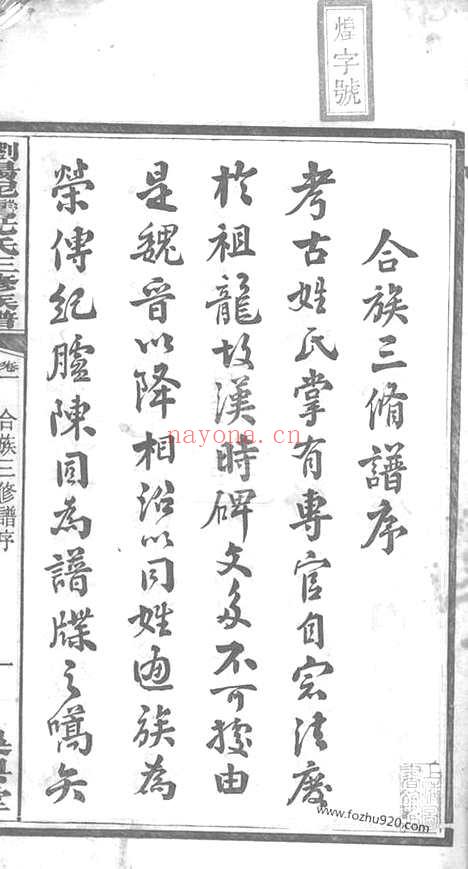 煌字號
合族三脩譜序
考古姓氏掌有專官自宗法廢
於祖龍故漢時碑文多不可據由
是魏晉以降相沿以同姓通族為
榮傳紀臚陳固為譜牒之嚆矢
氏三修族譜
卷一
合族三修譜序
一
nayona.cn
www.fozhu920.com